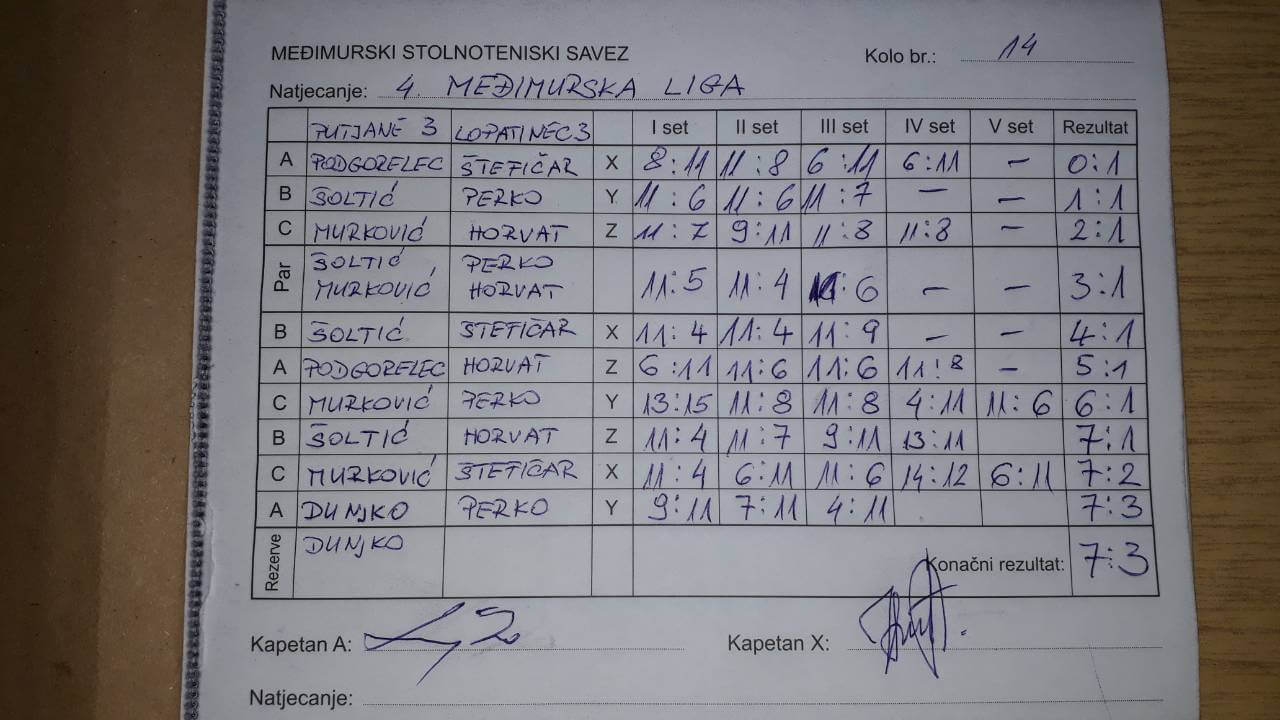 MEĐIMURSKI STOLNOTENISKI SAVEZ Kolo br.: 14
Natjecanje: 4. MEĐIMURSKA LIGA
PUTJANE 3 LOPATINEC 3 I set II set III set IV set V set Rezultat
A PODGORELEC ŠTEFIČAR X 8:11 11:8 6:11 6:11 – 0:1
B ŠOLTIĆ PERKO Y 11:6 11:6 11:7 – – 1:1
C MURKOVIĆ HORVAT Z 11:7 9:11 11:8 11:8 – 2:1
Par ŠOLTIĆ PERKO
MURKOVIĆ HORVAT 11:5 11:4 11:6 – – 3:1
B ŠOLTIĆ ŠTEFIČAR X 11:4 11:4 11:9 – – 4:1
A PODGORELEC HORVAT Z 6:11 11:6 11:6 11:8 – 5:1
C MURKOVIĆ PERKO Y 13:15 11:8 11:8 4:11 11:6 6:1
B ŠOLTIĆ HORVAT Z 11:4 11:7 9:11 13:11 7:1
C MURKOVIĆ ŠTEFIČAR X 11:4 6:11 11:6 14:12 6:11 7:2
A DUNJKO PERKO Y 9:11 7:11 4:11 7:3
Rezerve DUNJKO
Konačni rezultat: 7:3
Kapetan A: Kapetan X:
Natjecanje: